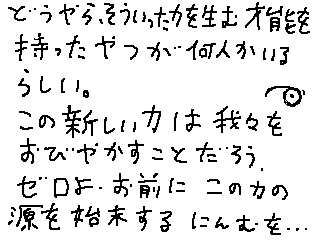 どうやら、そういった力を生む才能を
持ったやつが何人かいる
らしい。
この新しい力は我々を
おびやかすことだろう。
ゼロよ・お前にこの力の
源を始末するにんむを…